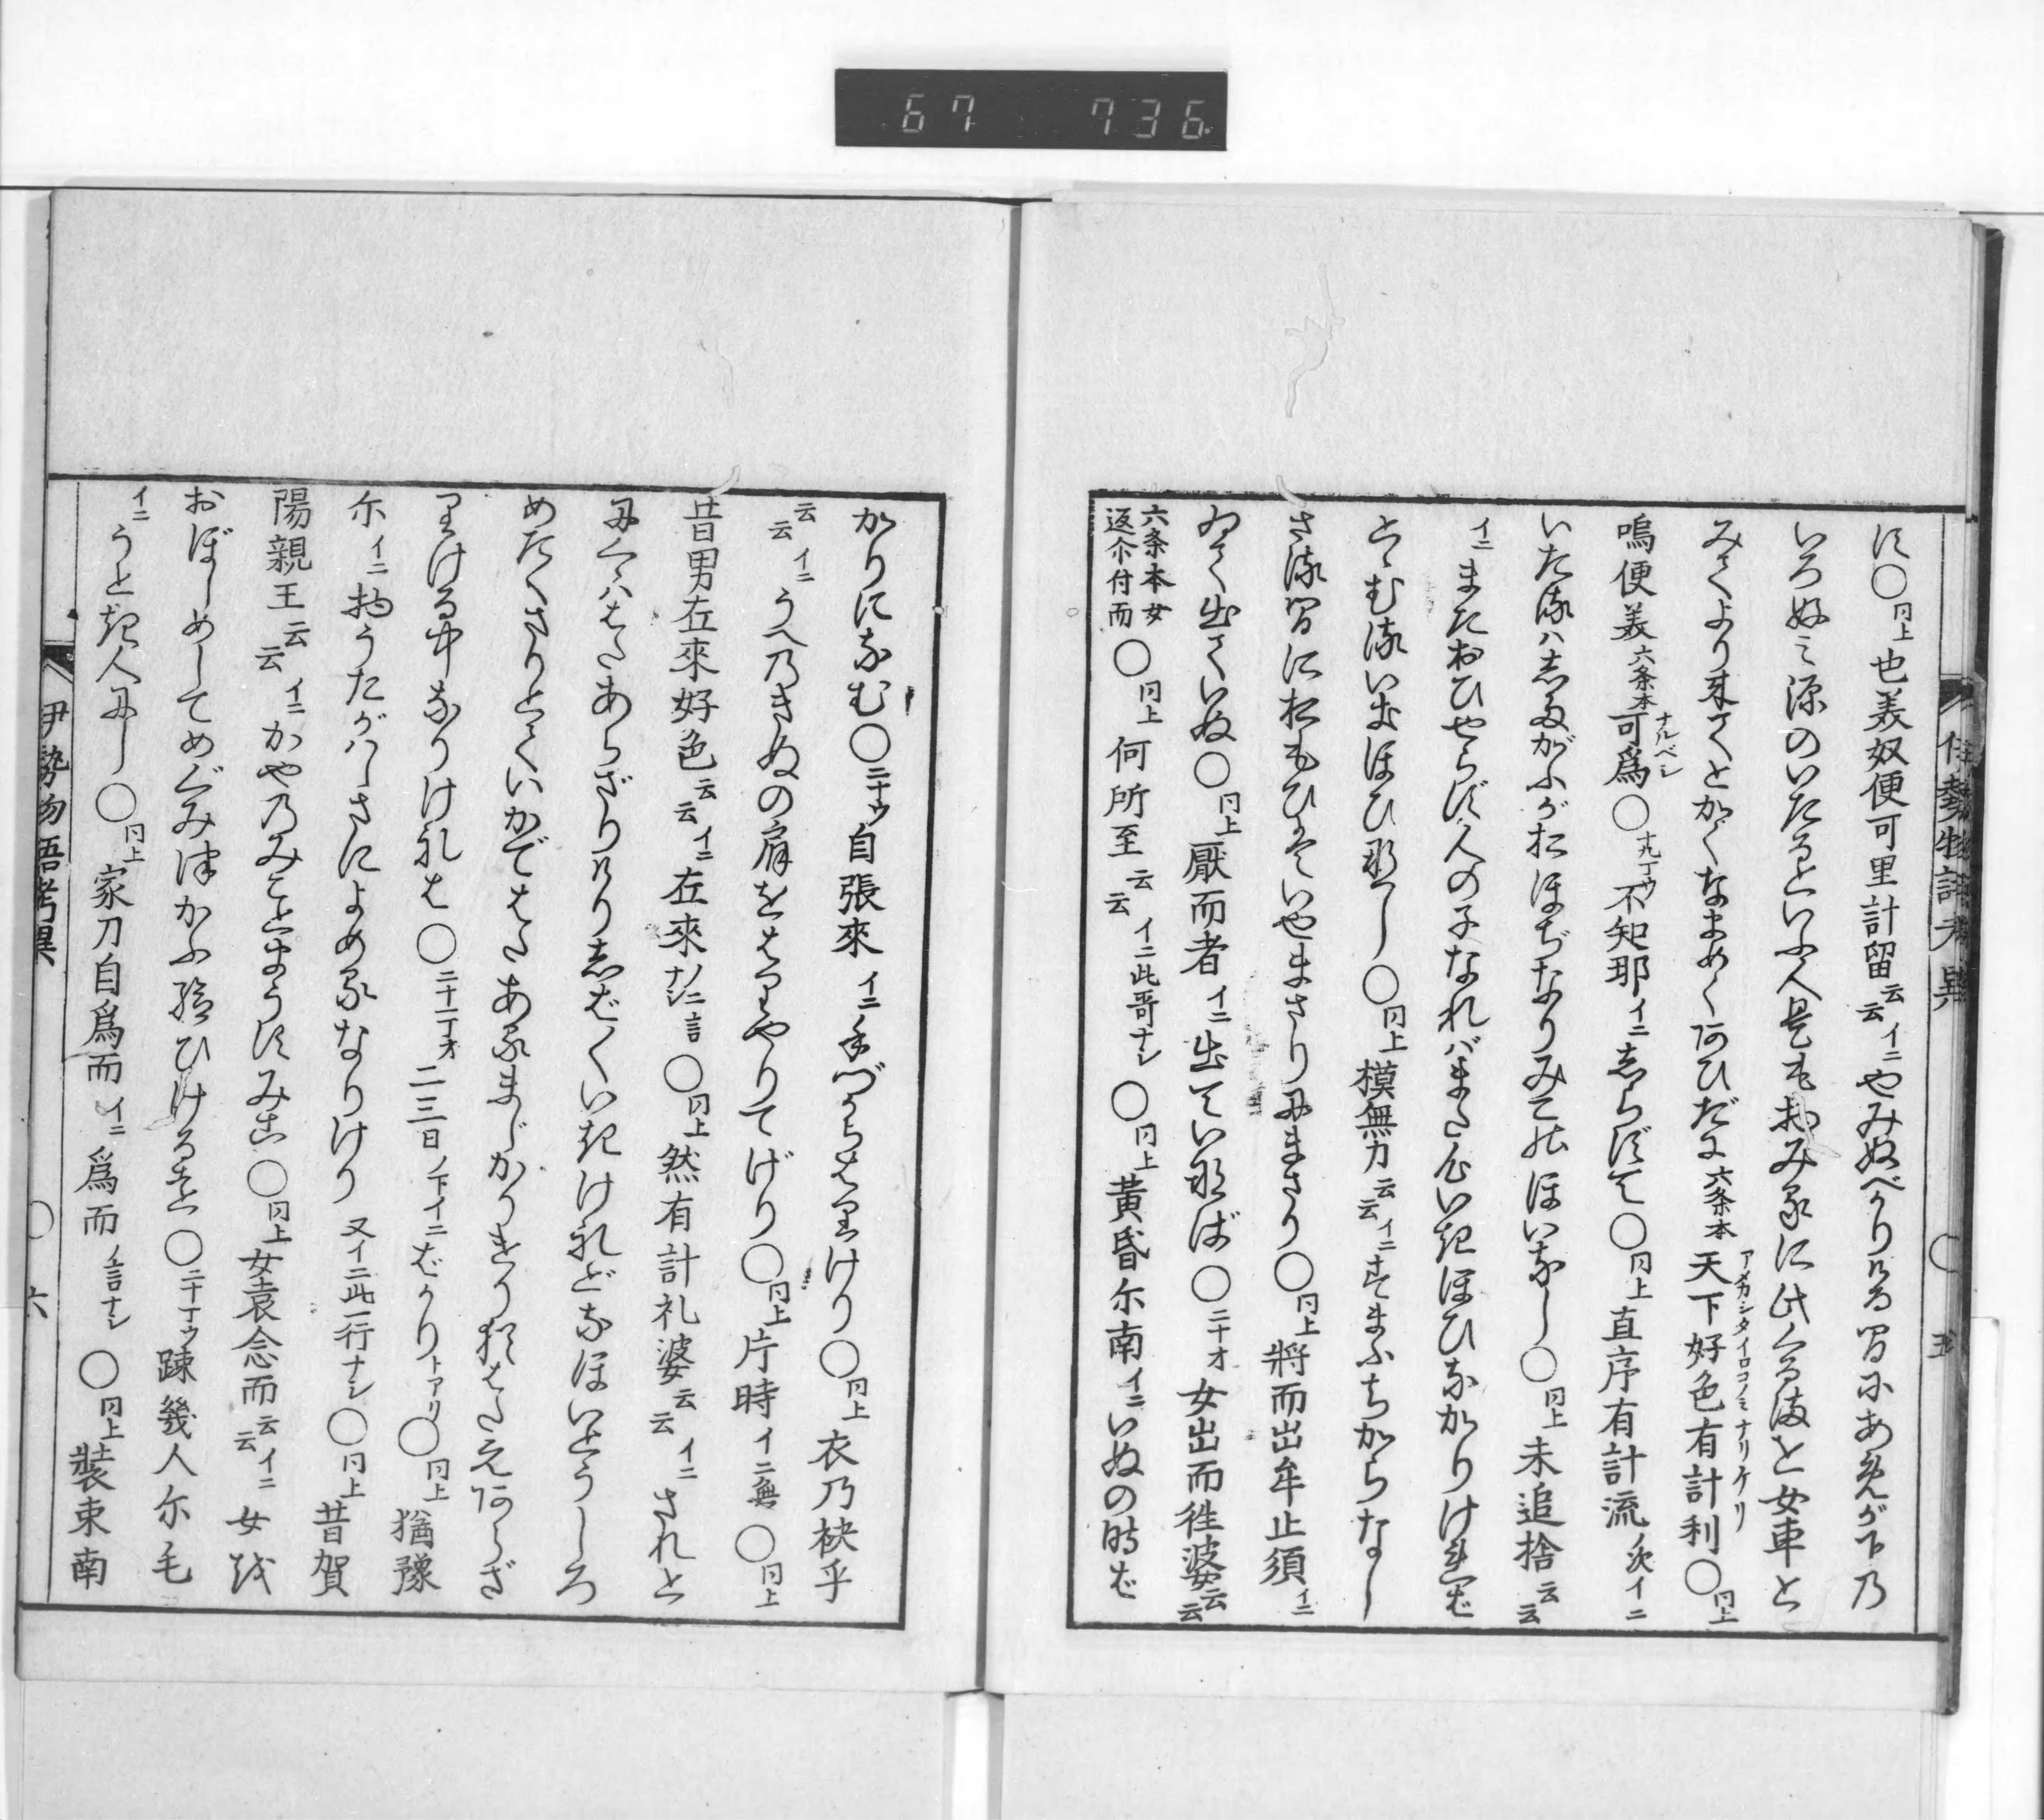 67 736
伊勢物語考異 ○ 五
に○同上也美奴便可里計留云云イニやみぬべかりける間にあめが下乃
いろ好みミ源のいたるといふ人是も物みるに此くるまを女車と
みてより来てとかくなまめく阿ひだに六条本天下好色有計利アメカシタイロコノミナリケリ○同上
嗚便美六条本可爲ナルベシ○十九丁ウ不知耶イニしらずて○同上直序有計流ノ次イニ
いたるハしたがふがおほぢなりみこのほいなし○同上未追捨云云
イニまだおひやらず人の子なればまだ心いきほひなかりければ
とゞむるいきほひなし○同上模無力云云イニすまふちからなし
さる間におもひはいやまさりにまさる○同上將而出牟止須イニ
ゐて出ていぬ○同上厭而者イニ出ていなば○二十オ女出而徃婆云云
六条本女返尓付而○同上何所至云云イニ此哥ナシ○同上黄昏尓南イニいぬの時ば
かりになむ○二十ウ自張來イニ手づからはりけり○同上衣乃袂乎
云云イニうへ乃きぬの肩をはりやりてげり○同上片時イニ無○同上
昔男在來好色云云イニ在來ノ二言ナシ○同上然有計礼婆云云イニされと
にくゝはたあらざりけりしばしばいきけれどなほいとうしろ
めたくさりとていかではたあるまじかりけり猶はたえあらざ
りける中なりけれは○二十一丁オ二三日ノ下イニばかりトアリ○同上猶豫
尓イニ物うたがハしさによめるなりけり又イニ此一行ナシ○同上昔賀
陽親王云云イニかや乃みことまうすみこ○同上女袁念而云云イニ女を
おぼしめしてめぐみつかふ給ひけるを○二十一丁ウ踈幾人尓毛
イニうとき人にし○同上家刀自爲而イニ爲而ノ言ナシ○同上裝束南
伊勢物語考異 ○ 六